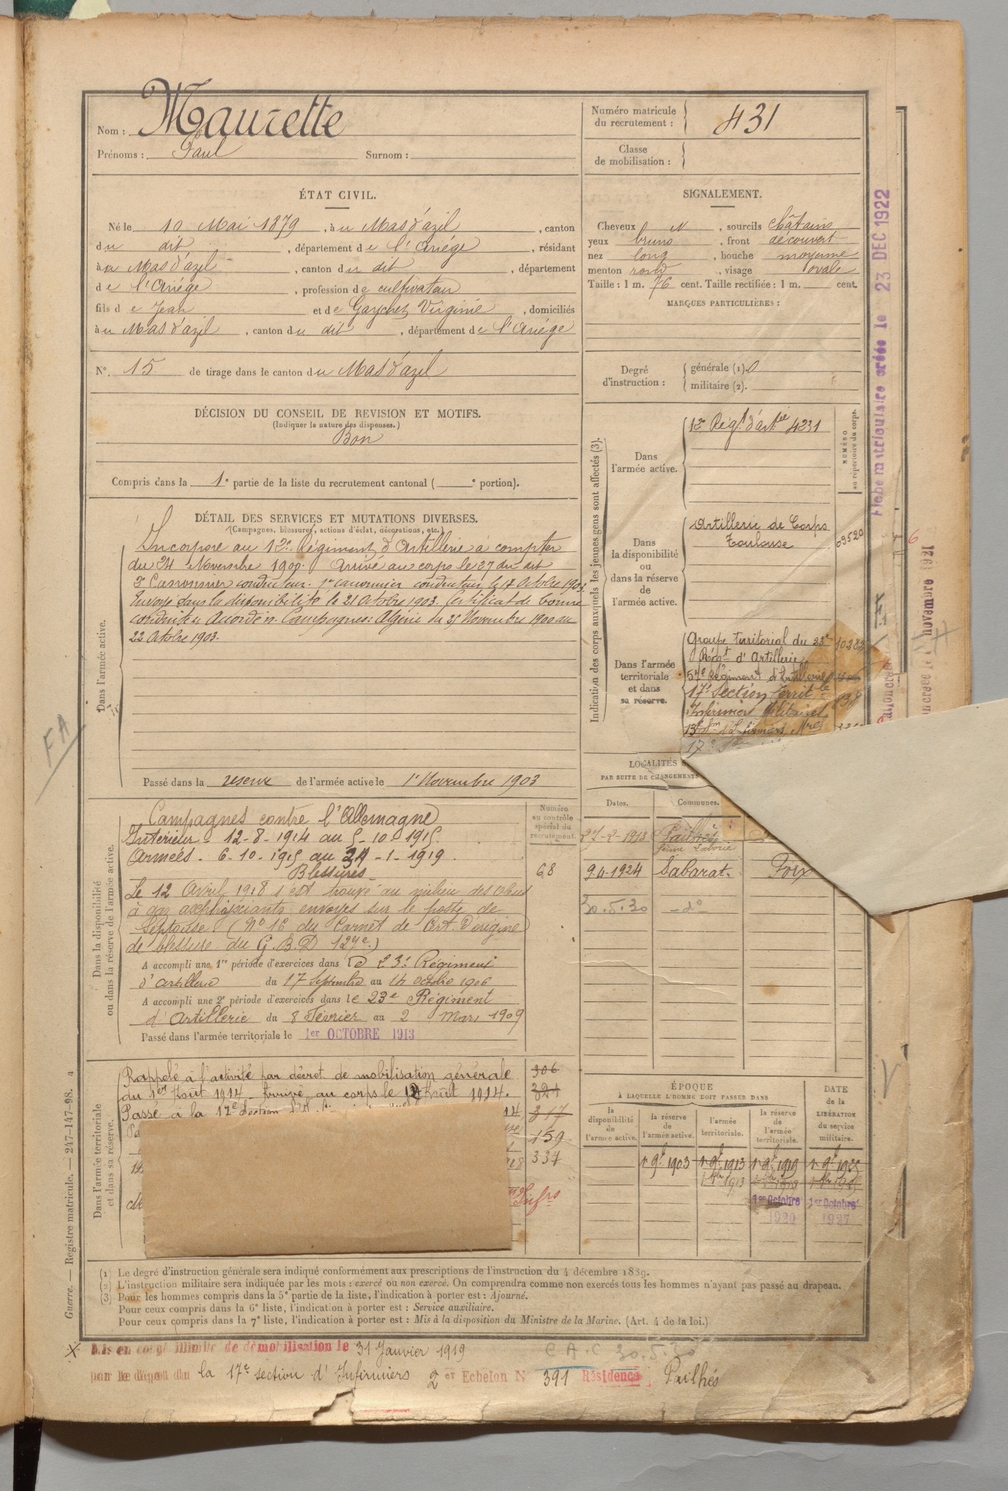 Nom : Maurette
Prénoms : Paul Surnom :
Numéro matricule du recrutement : 431
Classe de mobilisation :
ÉTAT CIVIL.
Né le 10 Mai 1879, à u Mas d'azil, canton
du dit, département de l'Ariège, résidant
à u Mas d'azil, canton du dit, département
de l'Ariège, profession de cultivateur
fils de Jean et de Virginie, domiciliés
à u Mas d'azil, canton du dit, département de l'Ariège
N° 15 de tirage dans le canton du Mas d'azil
SIGNALEMENT.
Cheveux N, sourcils châtains
yeux bruns, front découvert
nez long, bouche moyenne
menton rond, visage ovale
Taille : 1 m. 76 cent. Taille rectifiée : 1 m. cent.
MARQUES PARTICULIÈRES :
Degré d'instruction : générale (1)
militaire (2).
DÉCISION DU CONSEIL DE REVISION ET MOTIFS.
(Indiquer la nature des dispenses.)
Bon
Compris dans la 1e partie de la liste du recrutement cantonal ( e portion).
DÉTAIL DES SERVICES ET MUTATIONS DIVERSES.
(Campagnes, blessures, actions d'éclat, décorations, etc.)
Dans l'armée active.
Incorporé au Régiment d'Artillerie à compter
du Novembre 1900. Arrivé au corps le 27 du dit
2e Canonnier conducteur. 1er canonnier conducteur le 17 Octobre
Envoyé dans la disponibilité le 21 Octobre 1903. Certificat de bonne
conduite Accordé. Campagnes: Algérie du Novembre 1900 au
22 Octobre 1903.
Passé dans la réserve de l'armée active le 1er Novembre 1903
Indication des corps auxquels les jeunes gens sont affectés (3).
NUMÉRO au répertoire du corps.
Dans l'armée active.
Régt d'artie 4231
Dans la disponibilité ou dans la réserve de l'armée active.
Artillerie de Corps
Toulouse
03520
Dans l'armée territoriale et dans sa réserve.
Groupe territorial du 23e
Régt d'Artillerie
57e Régiment d'
17e Section territle
Infirmiers Militaires
LOCALITÉS
PAR SUITE DE CHANGEMENTS
Dates. Communes.
9-4-1924 Sabarat. Foix
30.5.30 - do
Dans la disponibilité ou dans la réserve de l'armée active.
Numéro au contrôle spécial du recrutement.
Campagnes contre l'Allemagne
Intérieur - 12-8-1914 au 5-10-1915.
Armées - 6-10-1915 au -1-1919.
Blessures
68
Le 12 Avril 1918 s'est trouvé au milieu des obus
à gaz asphyxiants envoyés sur le poste de
(No 16 du Carnet de Ct d'origine
de blessure du G.B.D 127e)
A accompli une 1re période d'exercices dans le 23e Régiment
d'Artillerie du 17 Septembre au 14 octobre 1906
A accompli une 2e période d'exercices dans le 23e Régiment
d'Artillerie du 8 Février au 2 Mars 1909
Passé dans l'armée territoriale le 1er OCTOBRE 1913
Dans l'armée territoriale et dans sa réserve.
Rappelé à l'activité par décret de mobilisation générale
du 1er Août 1914. Arrivé au corps le 12 Août 1914.
Passé à la 17e Section
306
321
317
159
337
ÉPOQUE
À LAQUELLE L'HOMME DOIT PASSER DANS
la disponibilité de l'armée active.
la réserve de l'armée active.
l'armée territoriale.
la réserve de l'armée territoriale.
DATE de la LIBÉRATION du service militaire.
1er 9e 1903 1er 9e 1913 1er 9e 1919 1er 9e 1925
1er Octobre 1920
1er Octobre 1927
(1) Le degré d'instruction générale sera indiqué conformément aux prescriptions de l'instruction du 4 décembre 1889.
(2) L'instruction militaire sera indiquée par les mots : exercé ou non exercé. On comprendra comme non exercés tous les hommes n'ayant pas passé au drapeau.
(3) Pour les hommes compris dans la 5e partie de la liste, l'indication à porter est : Ajourné.
Pour ceux compris dans la 6e liste, l'indication à porter est : Service auxiliaire.
Pour ceux compris dans la 7e liste, l'indication à porter est : Mis à la disposition du Ministre de la Marine. (Art. 4 de la loi.)
Mis en congé illimité de démobilisation le 31 Janvier 1919
C A C 30.5.30
par le dépôt du la 17e section d'Infirmiers 2e Echelon N° 391 Résidence Pailhés
Guerre. — Registre matricule. — 247-147-98.
Fiche matriculaire créée le 23 DEC 1922
novembre 1921
FA